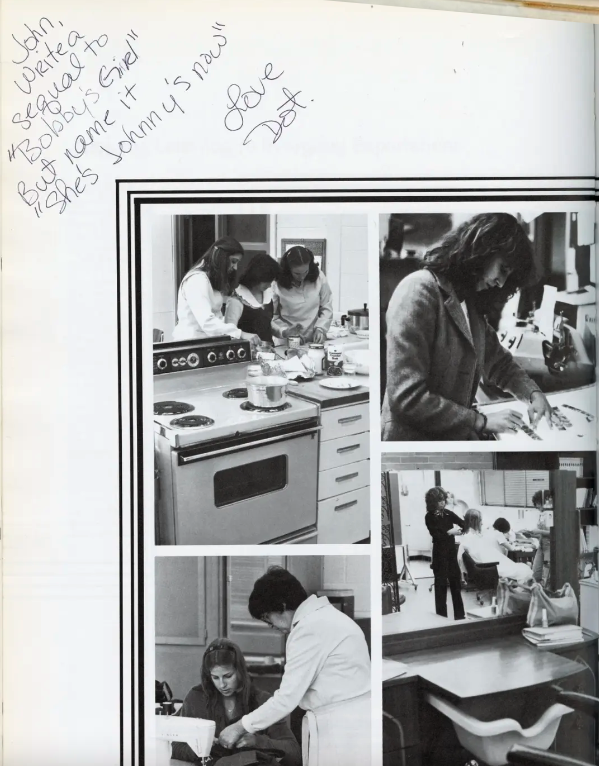 John,
Write a
sequal to
"Bobby's Girl"
But name it
"She's Johnny's now"
Love
Dot.